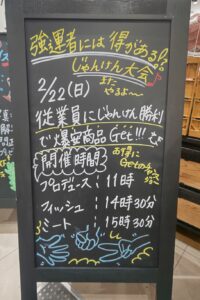 強運者には得がある!?
じゃんけん大会
またやるよ〜
2/22(日)
従業員にじゃんけん勝利
で爆安商品Get!!!
開催時間
お得にGetのチャンス
プロデュース:11時
フィッシュ:14時30分
ミート:15時30分